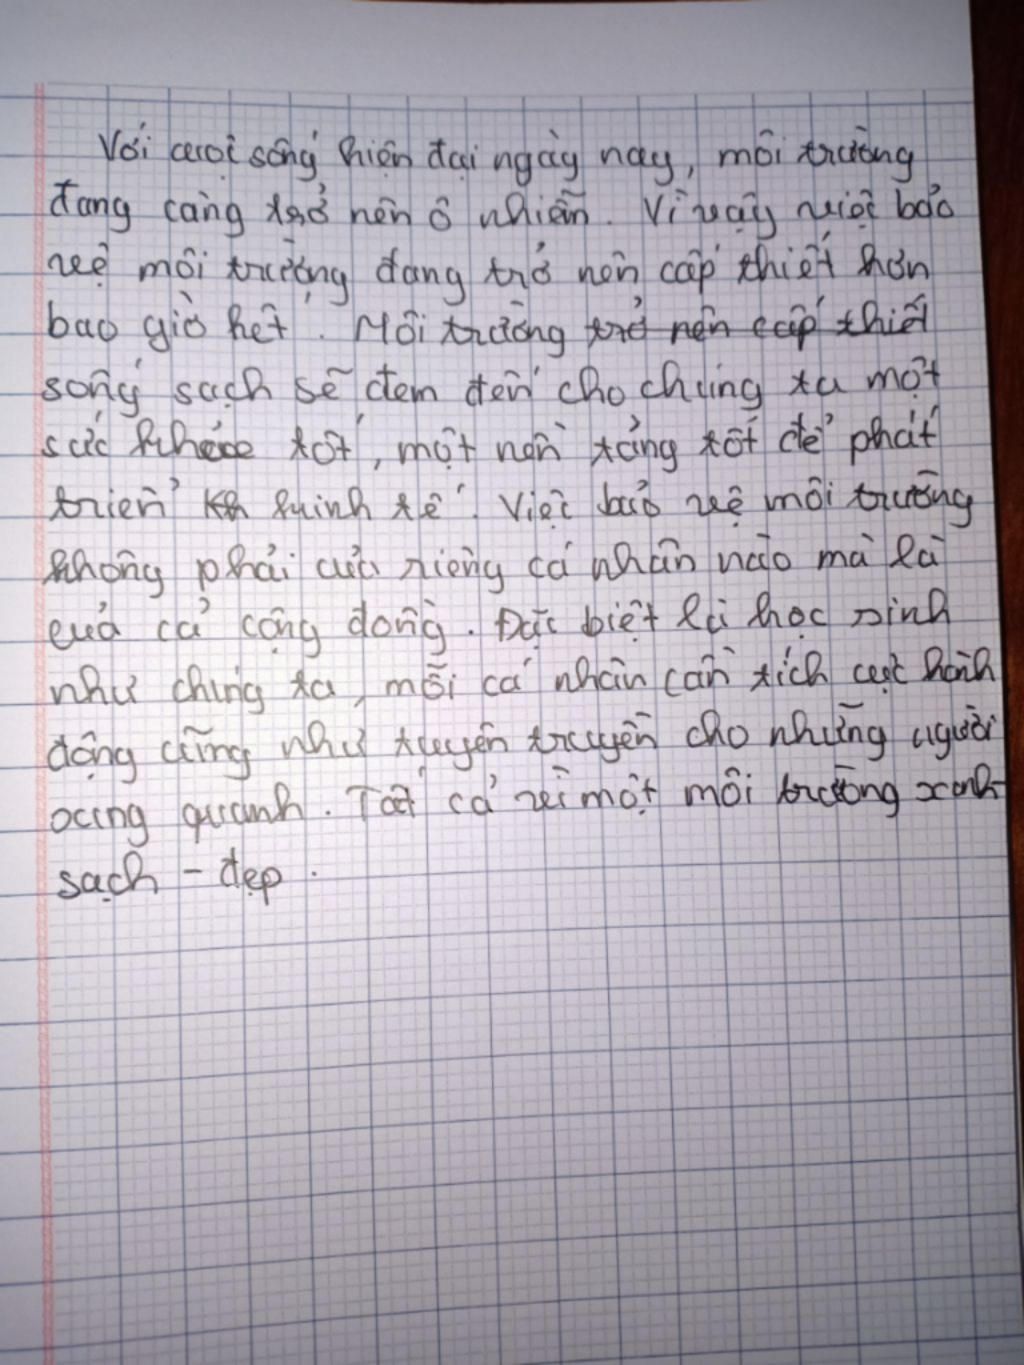 Với cuộc sống hiện đại ngày nay, môi trường
đang càng trở nên ô nhiễm. Vì vậy việc bảo
vệ môi trường đang trở nên cấp thiết hơn
bao giờ hết. Môi trường trở nên cấp thiết
sống sạch sẽ đem đến cho chúng ta một
sức khỏe tốt, một nền tảng tốt để phát
triển kinh tế. Việc bảo vệ môi trường
không phải của riêng cá nhân nào mà là
của cả cộng đồng. Đặc biệt là học sinh
như chúng ta, mỗi cá nhân cần tích cực hành
động cũng như tuyên truyền cho những người
xung quanh. Tất cả vì một môi trường xanh-
sạch - đẹp.